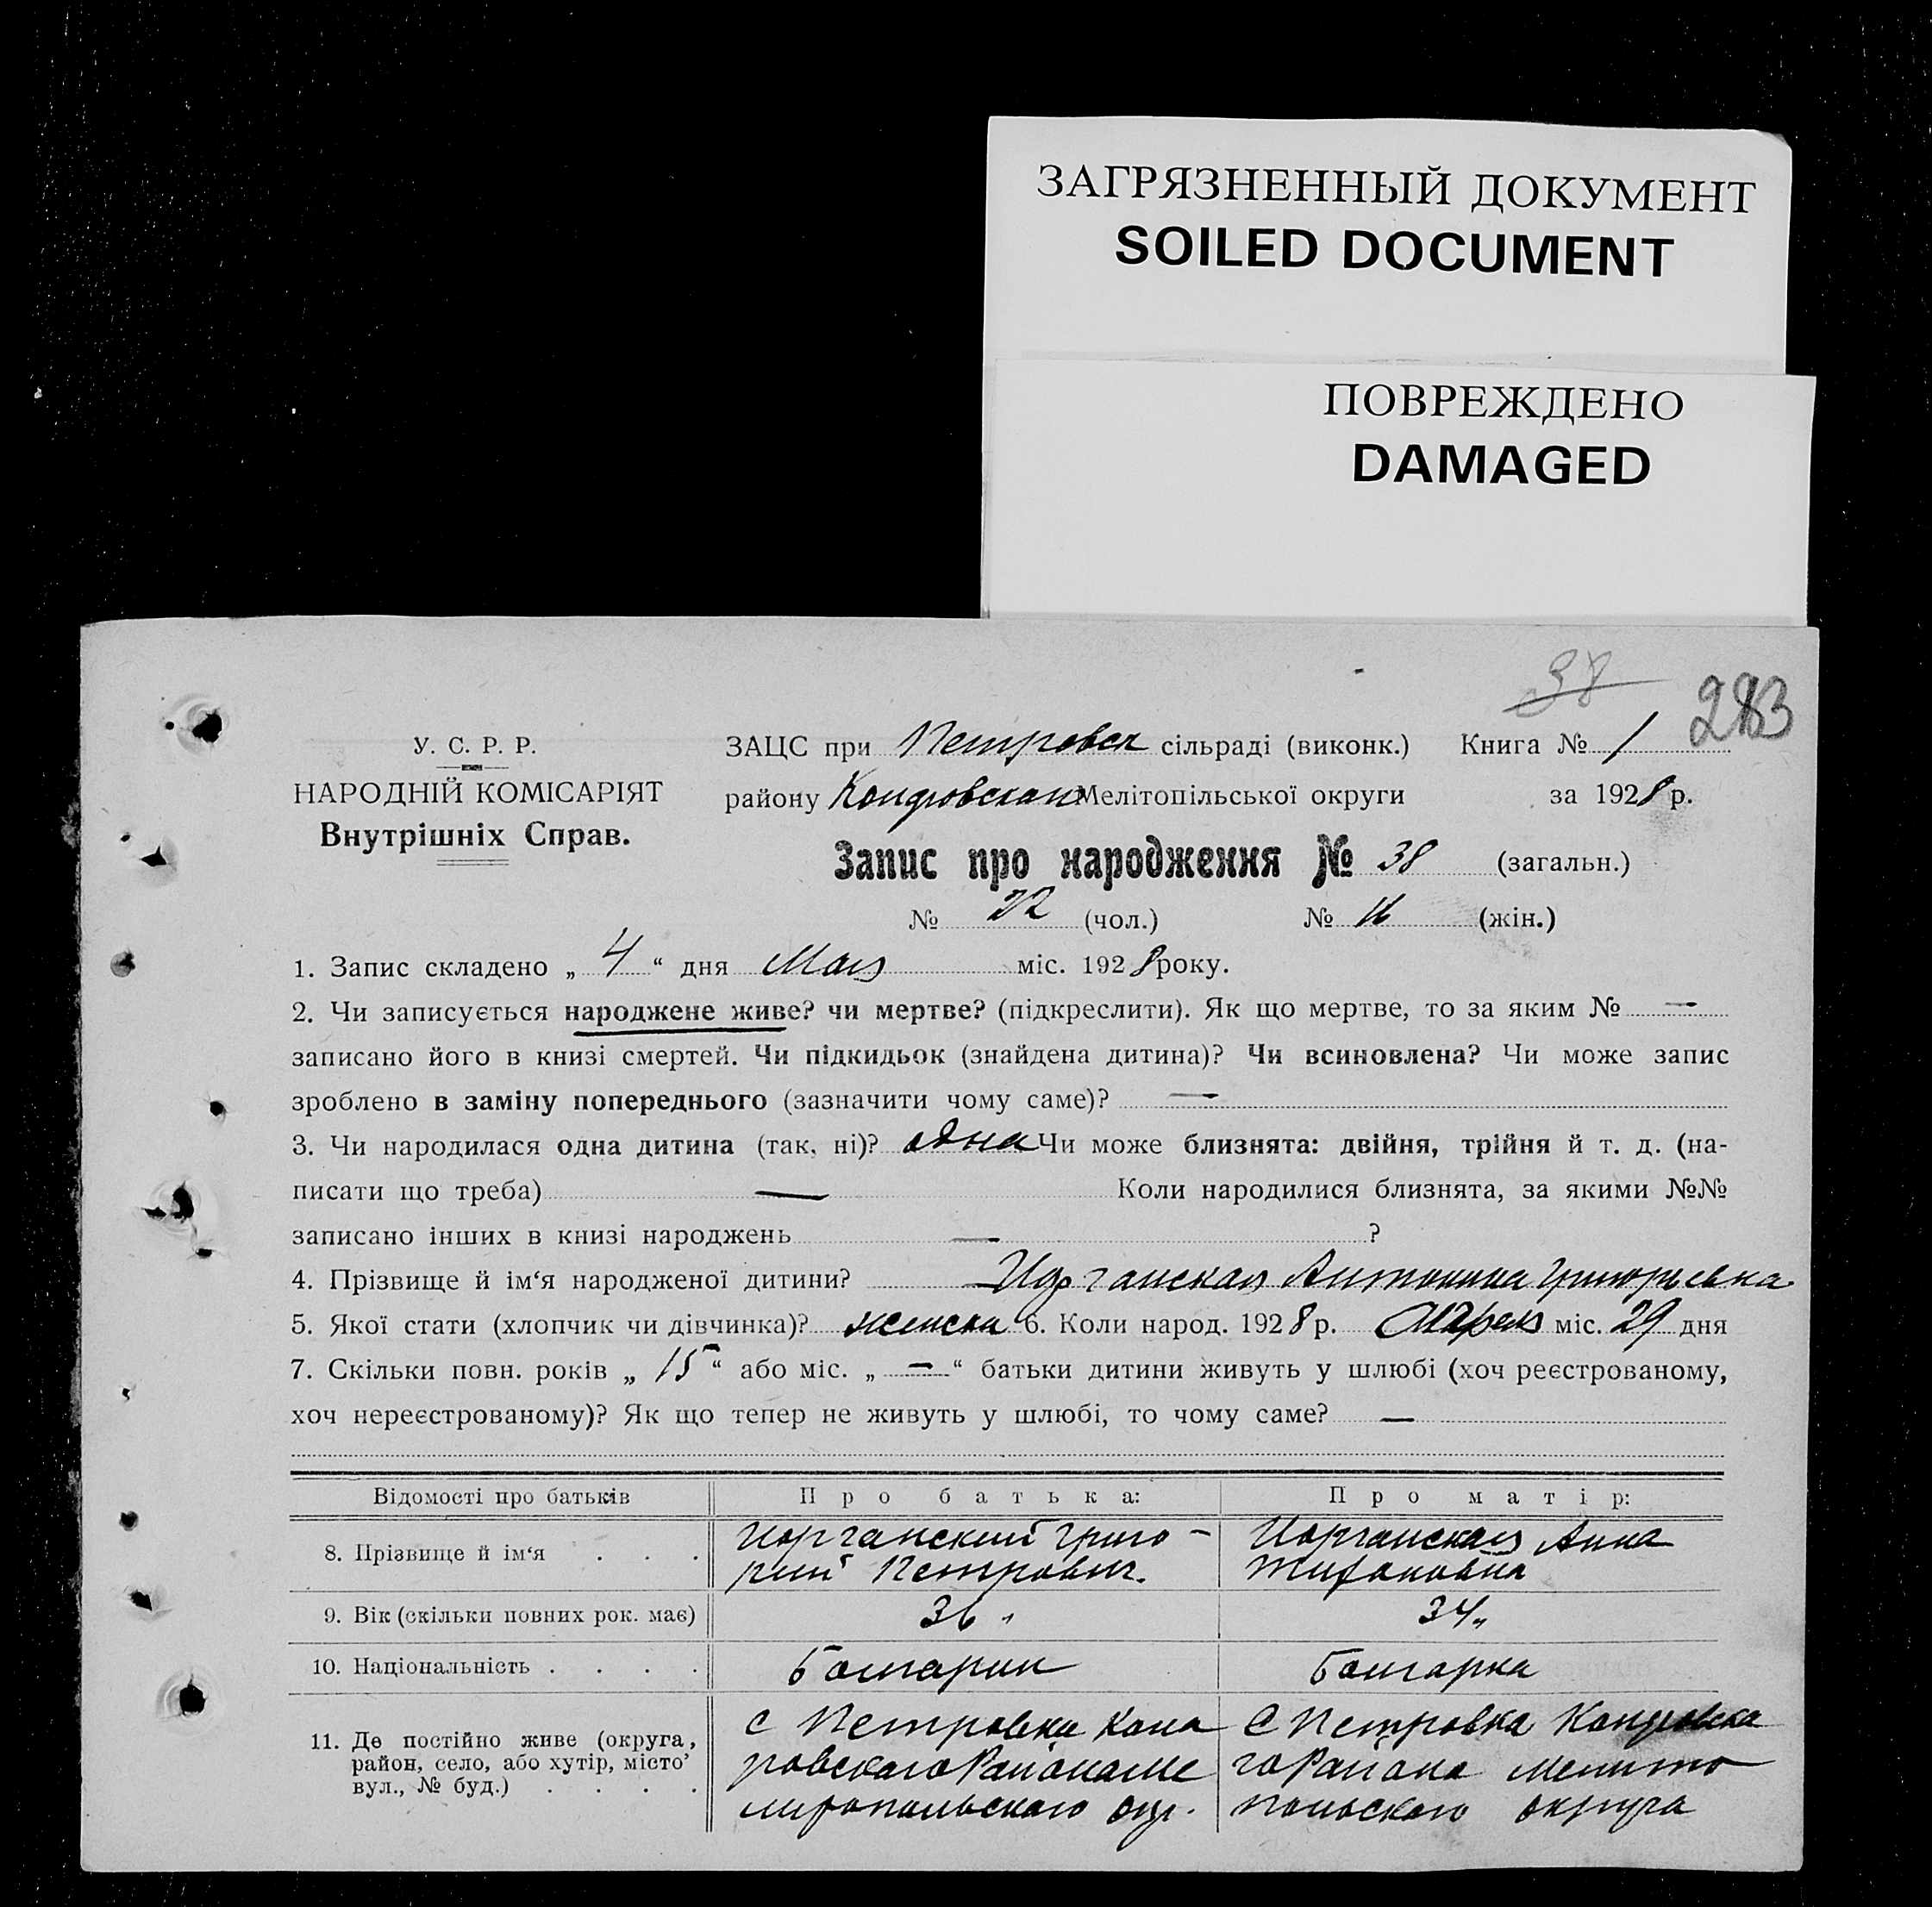 ЗАГРЯЗНЕННЫЙ ДОКУМЕНТ
SOILED DOCUMENT
ПОВРЕЖДЕНО
DAMAGED
38 283
У. С. Р. Р.
НАРОДНІЙ КОМІСАРІЯТ
Внутрішніх Справ.
ЗАЦС при Петровск сільраді (виконк.) Книга № 1
району Мелітопільської округи за 1928 р.
Запис про народження № 38 (загальн.)
№ 22 (чол.) № 16 (жін.)
1. Запис складено „ 4 “ дня Мая міс. 1928 року.
2. Чи записується народжене живе? чи мертве? (підкреслити). Як що мертве, то за яким № —
записано його в книзі смертей. Чи підкидьок (знайдена дитина)? Чи всиновлена? Чи може запис
зроблено в заміну попереднього (зазначити чому саме)? —
3. Чи народилася одна дитина (так, ні)? одна Чи може близнята: двійня, трійня й т. д. (на-
писати що треба) — Коли народилися близнята, за якими №№
записано інших в книзі народжень — ?
4. Прізвище й ім‘я народженої дитини? Антонина Григорьевна
5. Якої стати (хлопчик чи дівчинка)? женска 6. Коли народ. 1928 р. Апрель міс. 29 дня
7. Скільки повн. років „ 15 “ або міс. „ — “ батьки дитини живуть у шлюбі (хоч реєстрованому,
хоч нереєстрованому)? Як що тепер не живуть у шлюбі, то чому саме? —
Відомості про батьків Про батька: Про матір:
8. Прізвище й ім‘я . . .
Иорганский Григо-
рий Петрович.
Иорганская Анна
Тифановна
9. Вік (скільки повних рок. має) 36 34
10. Національність . . . . Болгарин Болгарка
11. Де постійно живе (округа,
район, село, або хутір, місто’
вул., № буд.) . . . .
с Петровка
ровского Района Ме
литопольского окр.
С Петровка Конровска
го Района Мелито
польского округа